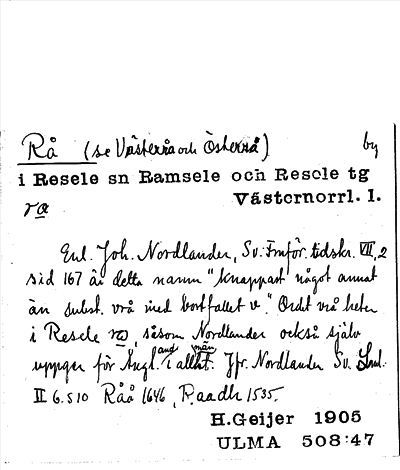 Rå (se Västerrå och Österrå) by
i Resele sn Ramsele och Resele tg
Västernorrl. l.
Enl. Joh. Nordlander, Sv. Fmför. tidskr. VII, 2
sid 167 är detta namn "knappast något annat
än subst. vrå med bortfallet v". Ordet vrå heter
i Resele såsom Nordlander också själv
uppger för Ångl. i allm. Jfr. Nordlander Sv.
II 6. s 10 Råå 1646, Raadh 1535.
H.Geijer 1905
ULMA 508:47